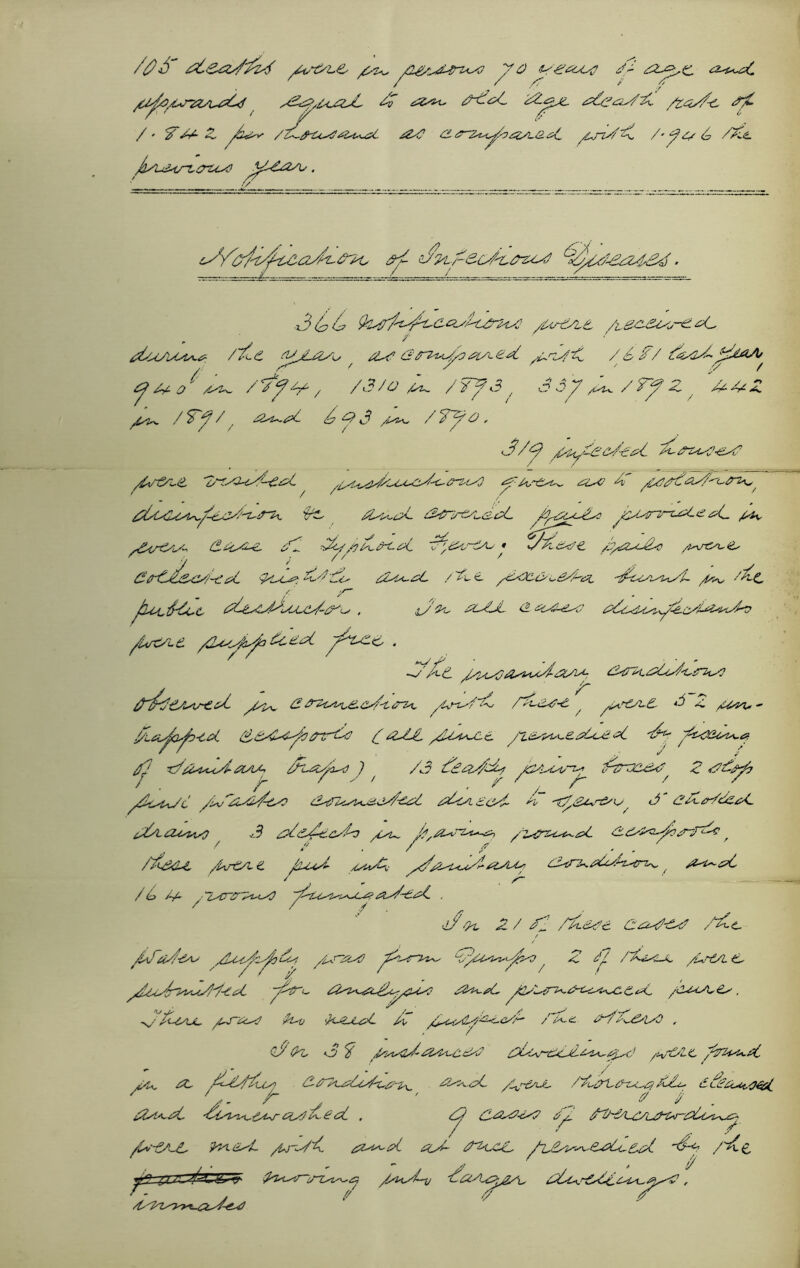 105 deaths were in persons 70 years of age and
upwards, equal to an old age death rate of
1.842 per thousand as compared with 1.746 the
previous year.
Notification of Infectious Diseases.
366 Notifications were received
during the year, as compared with 1681 last year
940 in 1894, 1310 in 1893, 337 in 1892, 442
in 1891, and 693 in 1890.
319 infected houses
were visited, instructions given as to isolation,
disinfection &c, and covered pails provided in
every case of Typhoid Fever. These pails were
collected nightly and the excreta burnt in the
public destructor. In all cases disinfectants
were supplied free.
The insanitary conditions
observed in connection with these, were 52 un-
trapped cesspools (all since remedied by fixing
of sanitary traps), 13 leaky privy boxes, 2 slop
sink wastes connected direct to sewer, 5 choked
drains, 3 defects in paving round cesspools,
these were put into sanitary condition, and
164 rooms fumigated.
In 21 of these cases the
water supply was from pumps, 2 of these were
submitted for analysis and pronounced pure.
There was no need to suspect the others.
In 38 instances dwellings were found
in a filthy condition, and were thoroughly cleansed
and limewashed. 9 cases of overcrowding
were met with and at once remedied by the
moving into larger dwellings.
inmates